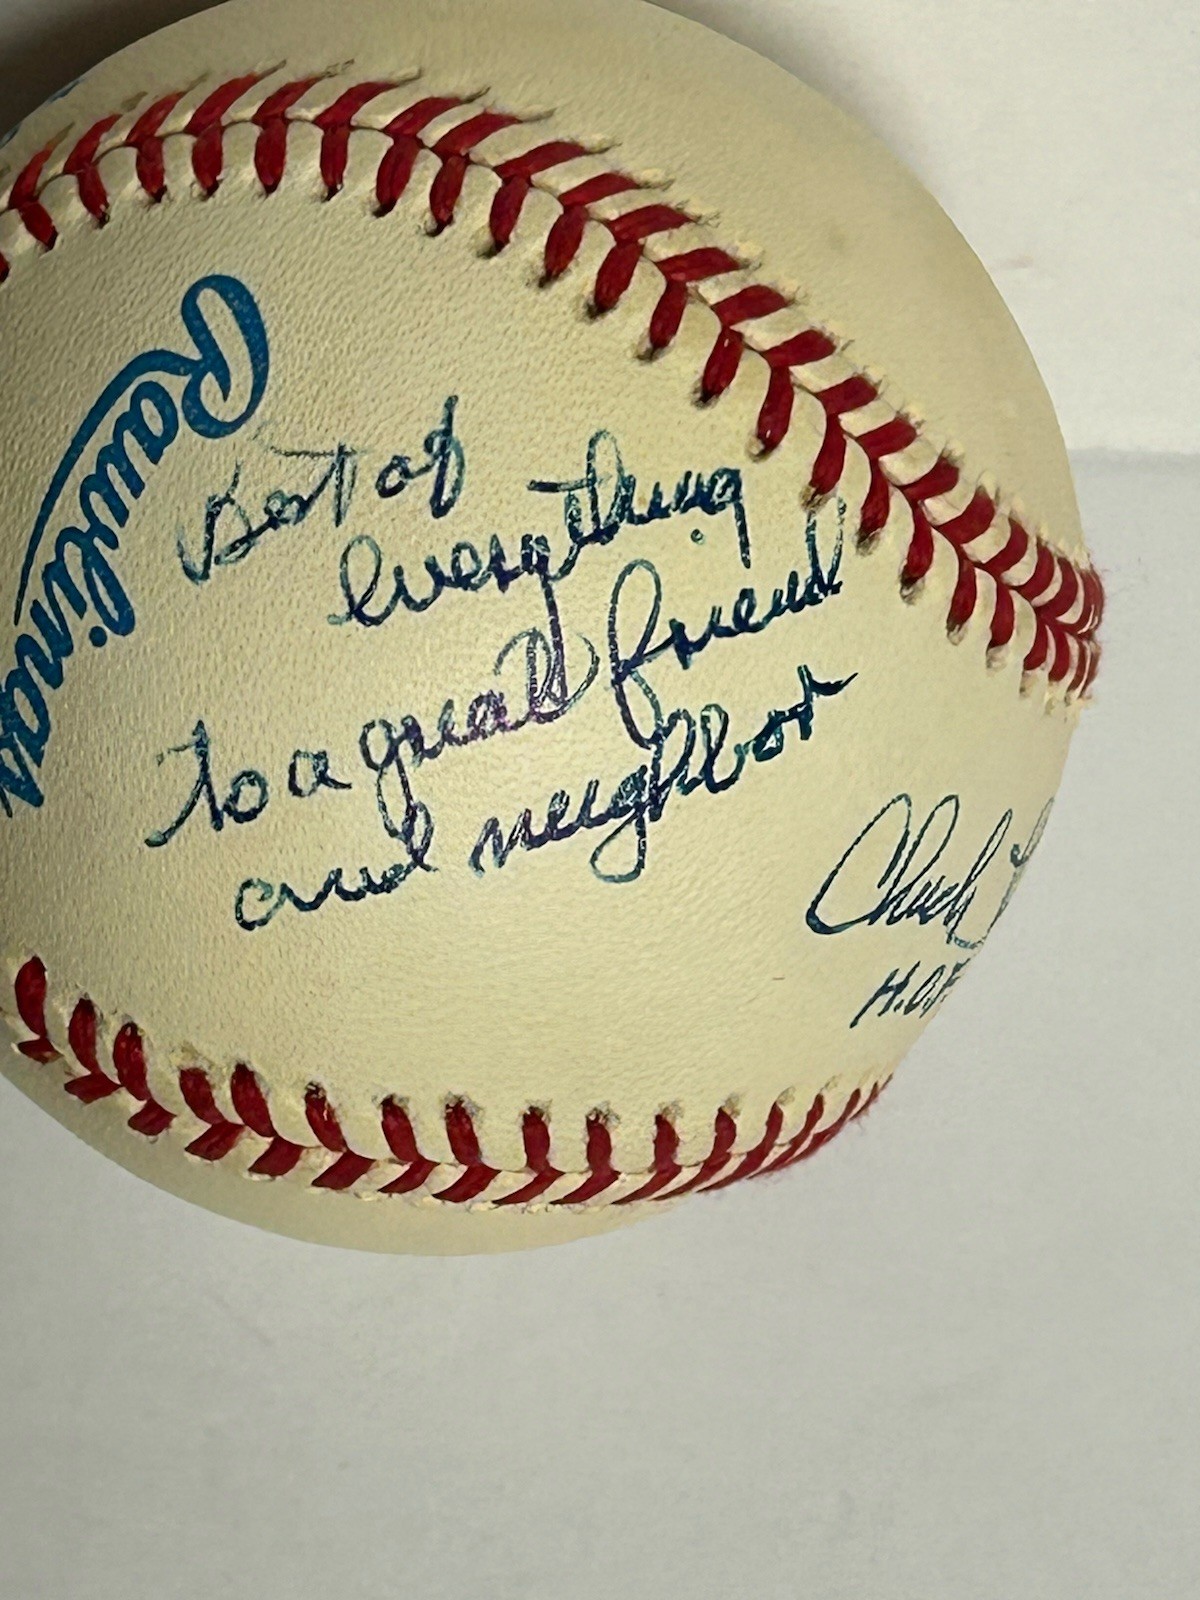 Rawlings
Best of
everything
to a great friend
and neighbor
Chuck
H.O.F